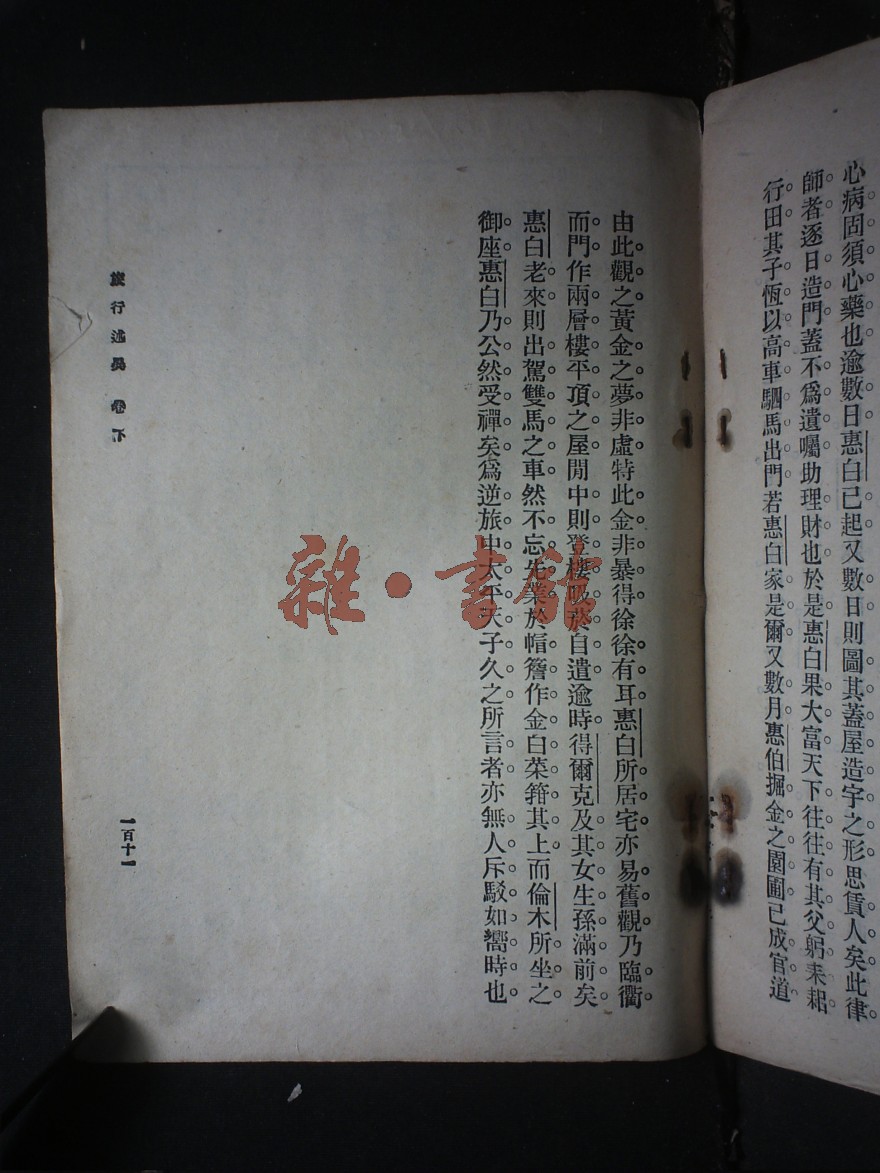 心病固須心藥也逾數日惠白已起又數日則圖其蓋屋造宇之形思賃人矣此律
師者逐日造門蓋不爲遺囑助理財也於是惠白果大富天下往往有其父躬耒耜
行田其子恆以高車駟馬出門若惠白家是爾又數月惠伯掘金之園圃已成官道
由此觀之黃金之夢非虛特此金非暴得徐徐有耳惠白所居宅亦易舊觀乃臨衢
而門作兩層樓平項之屋閒中則登樓吸菸自遣逾時得爾克及其女生孫滿前矣
惠白老來則出駕雙馬之車然不忘先業於帽簷作金白菜箝其上而倫木所坐之
御座惠白乃公然受禪矣爲逆旅中太平天子久之所言者亦無人斥駁如嚮時也
旅行述異 卷下
一百十一
雜·書館